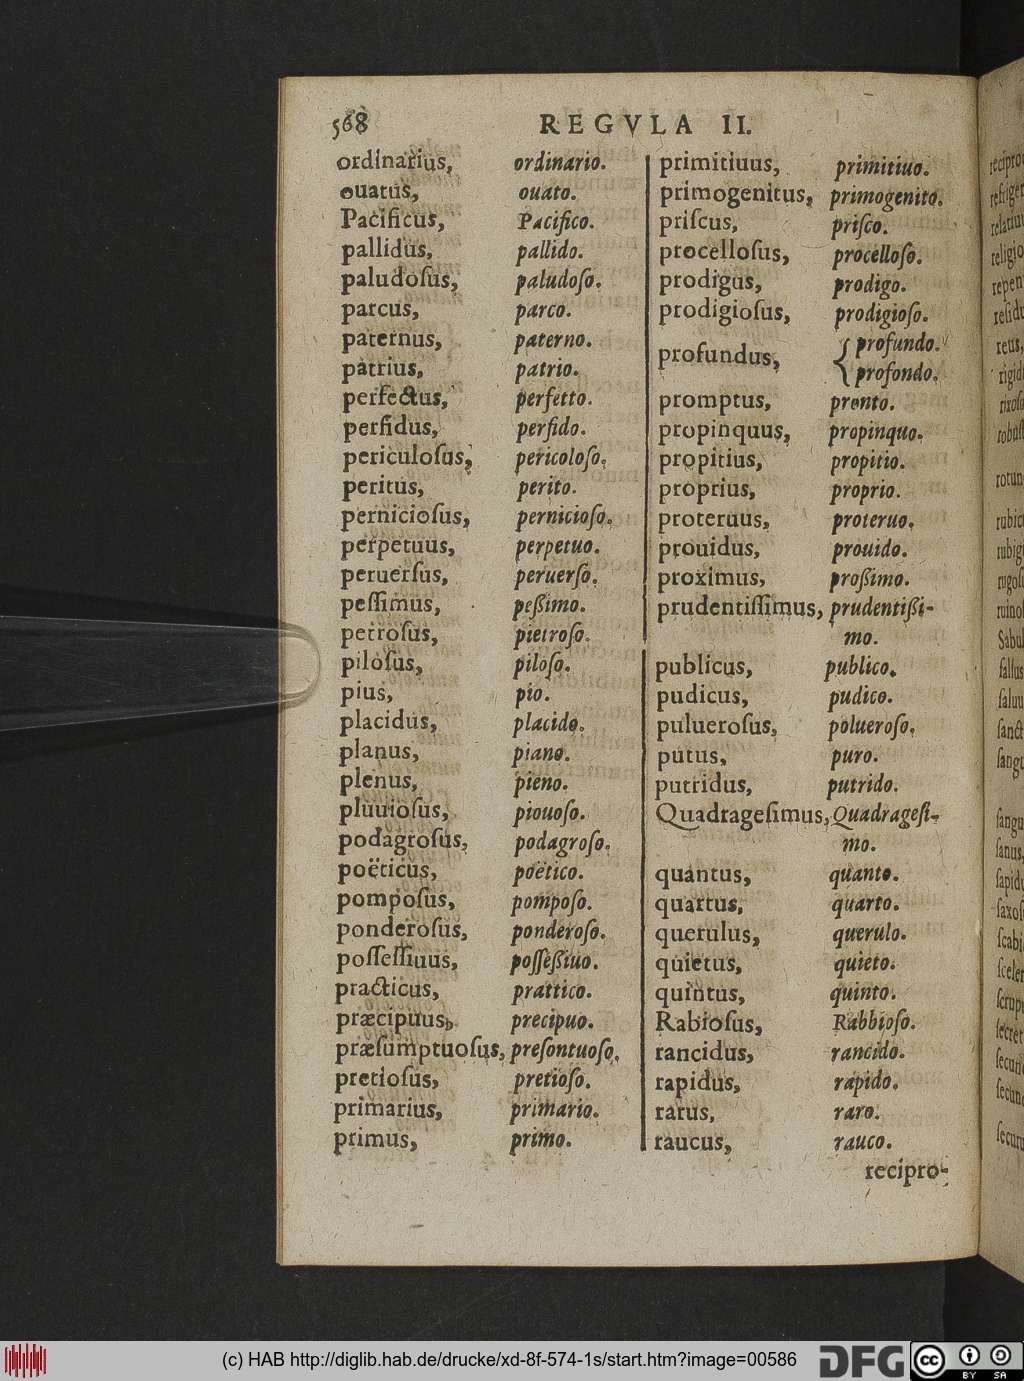 568 REGVLA II.
ordinarius, ordinario.
ouatus, ouato.
Pacificus, Pacifico.
pallidus, pallido.
paludoſus, paludoſo.
parcus, parco.
paternus, paterno.
patrius, patrio.
perfectus, perfetto.
perfidus, perfido.
periculoſus, pericoloſo.
peritus, perito.
pernicioſus, pernicioſo.
perpetuus, perpetuo.
peruerſus, peruerſo.
peſſimus, peßimo.
petroſus, pietroſo.
piloſus, piloſo.
pius, pio.
placidus, placido.
planus, piano.
plenus, pieno.
pluuioſus, piouoſo.
podagroſus, podagroſo.
poëticus, poëtico.
pompoſus, pompoſo.
ponderoſus, ponderoſo.
poſſeſſiuus, poſſeßiuo.
practicus, prattico.
præcipuus, precipuo.
præſumptuoſus, preſontuoſo.
pretioſus, pretioſo.
primarius, primario.
primus, primo.
primitiuus, primitiuo.
primogenitus, primogenito.
priſcus, priſco.
procelloſus, procelloſo.
prodigus, prodigo.
prodigioſus, prodigioſo.
profundus, { profundo.
profondo.
promptus, pronto.
propinquus, propinquo.
propitius, propitio.
proprius, proprio.
proteruus, proteruo.
prouidus, prouido.
proximus, proßimo.
prudentiſſimus, prudentißi-
mo.
publicus, publico.
pudicus, pudico.
pulueroſus, polueroſo.
putus, puro.
putridus, putrido.
Quadrageſimus, Quadrageſi-
mo.
quantus, quanto.
quartus, quarto.
querulus, querulo.
quietus, quieto.
quintus, quinto.
Rabioſus, Rabbioſo.
rancidus, rancido.
rapidus, rapido.
rarus, raro.
raucus, rauco.
recipro-
(c) HAB http://diglib.hab.de/drucke/xd-8f-574-1s/start.htm?image=00586
DFG
cc BY SA